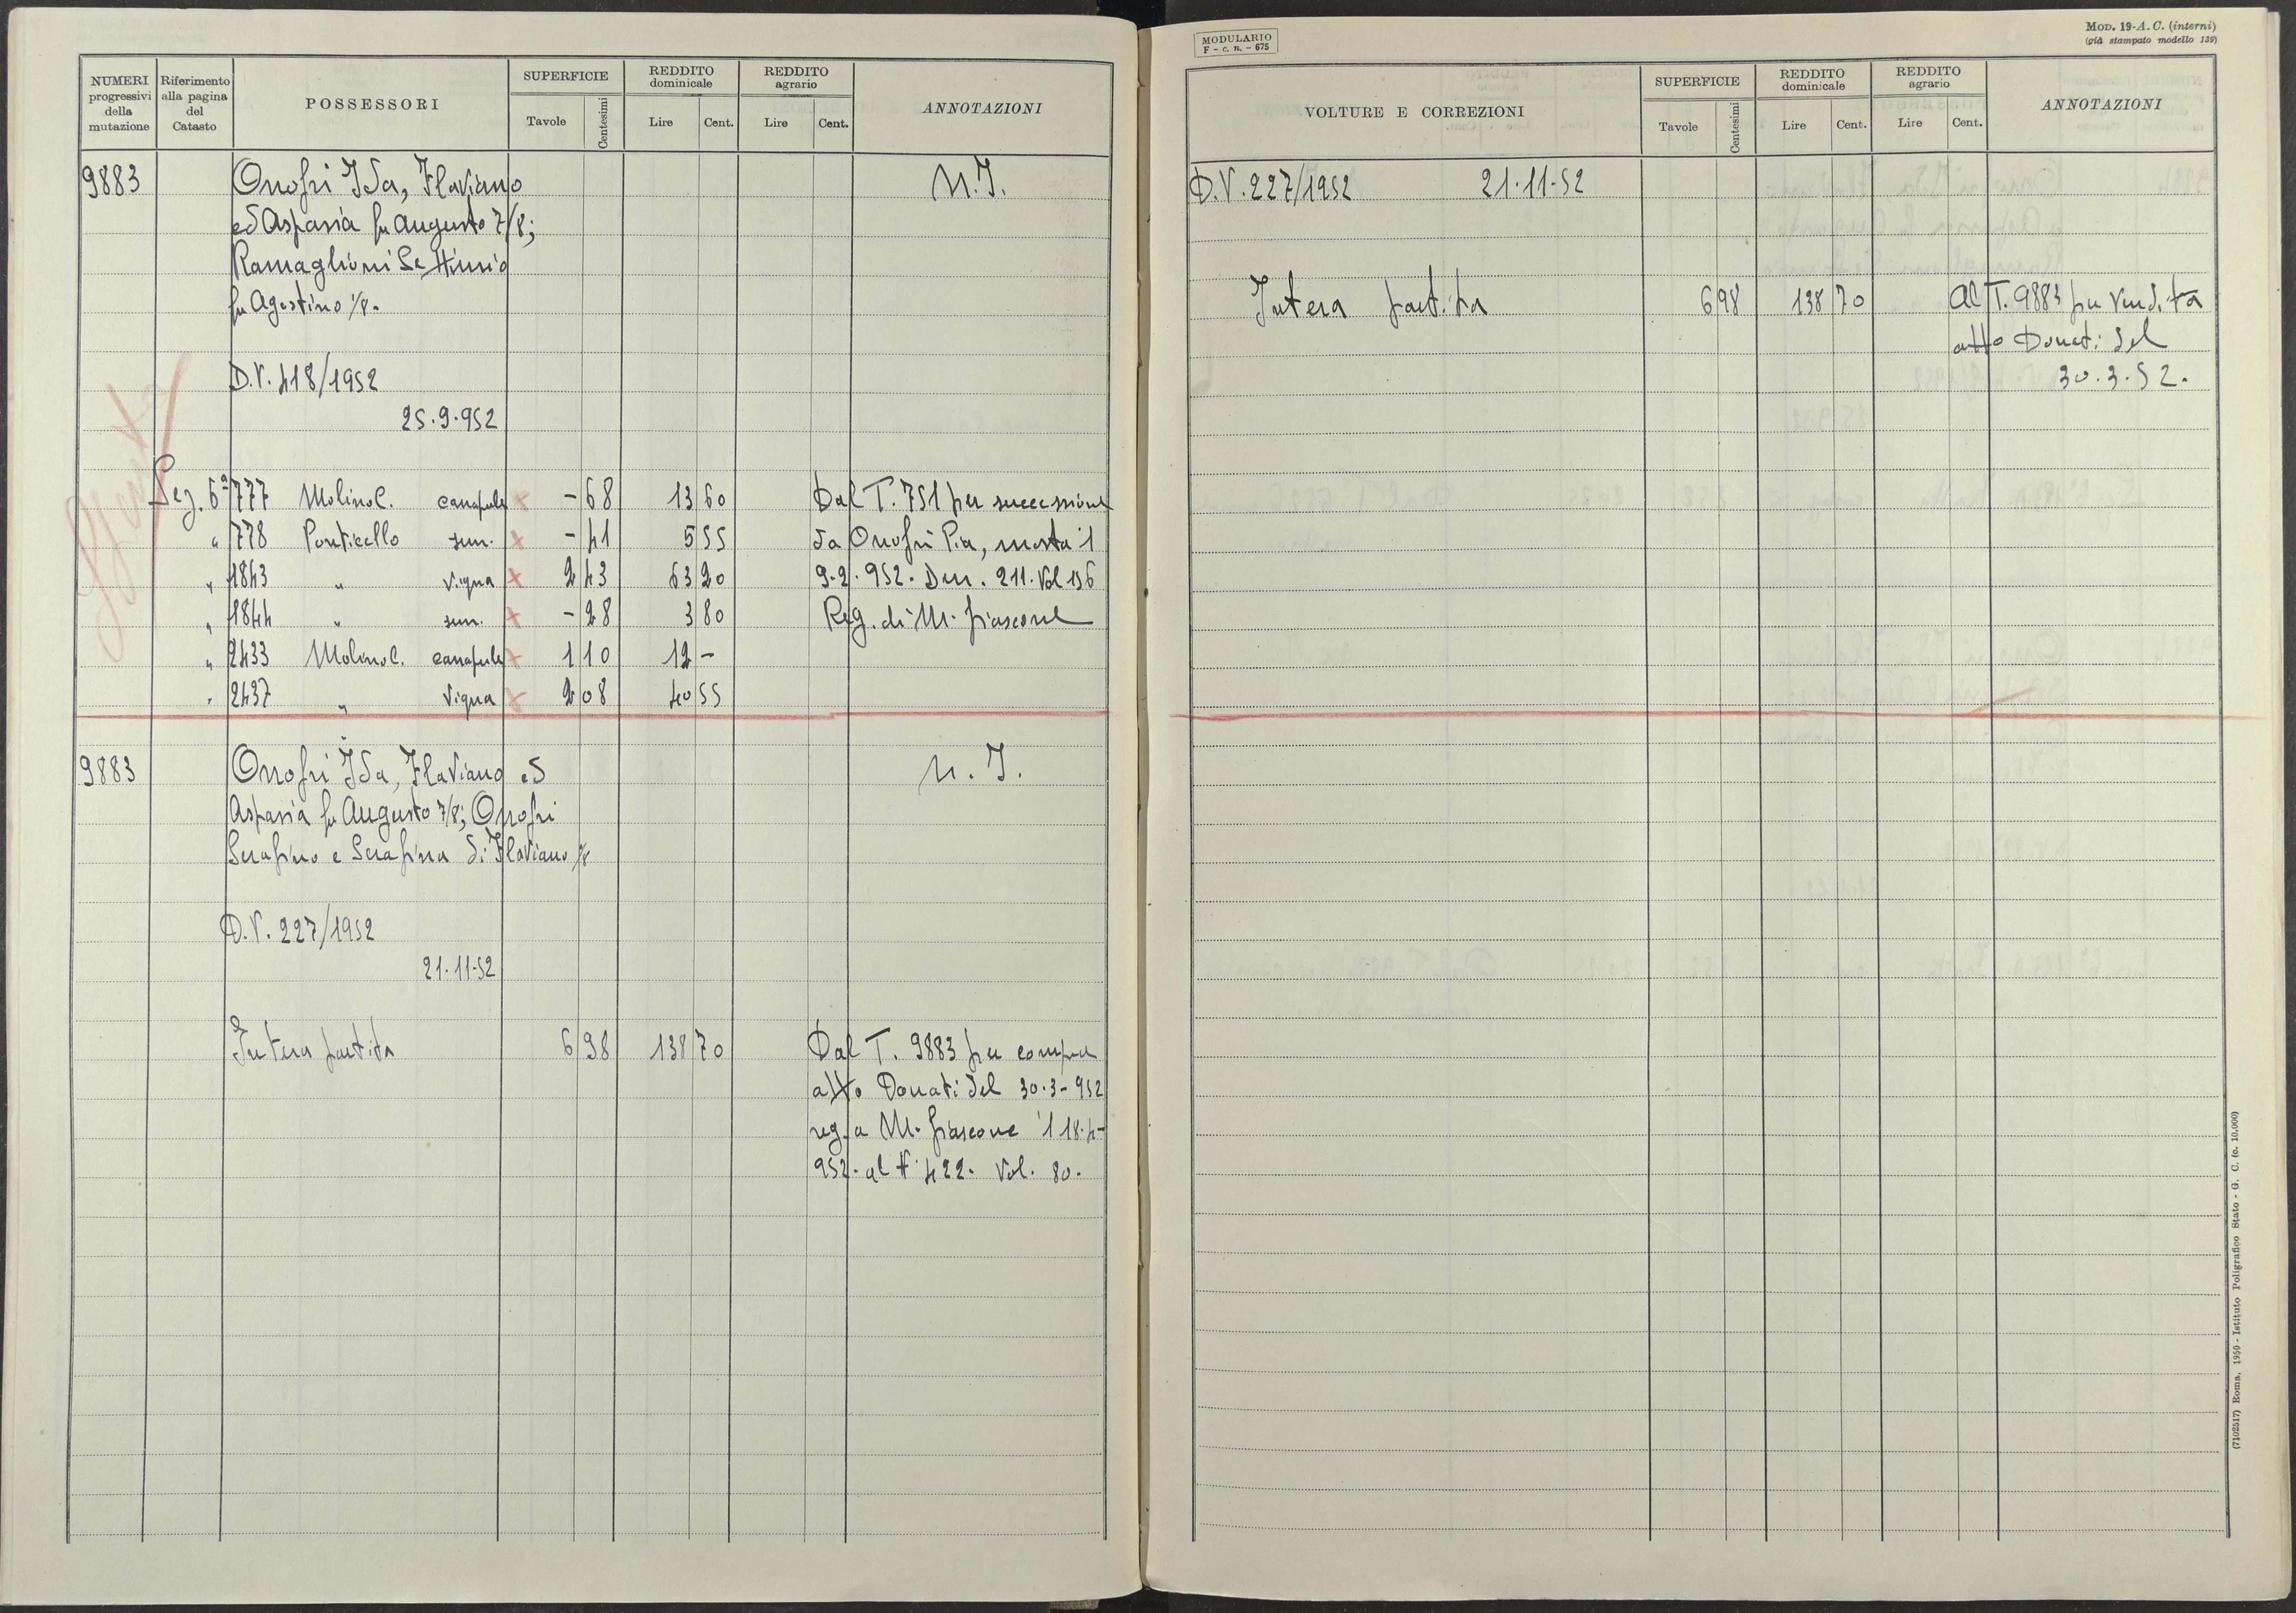 NUMERI progressivi della mutazione
Riferimento alla pagina del Catasto
POSSESSORI
SUPERFICIE
Tavole Centesimi
REDDITO dominicale
Lire Cent.
REDDITO agrario
Lire Cent.
ANNOTAZIONI
9883 Onofri Ida, Flaviano N.I.
ed Aspasia fu Augusto 7/8;
Ramaglioni Settimio
fu Agostino 1/8.
D.V. 418/1952
25.9.952
Sez. 6ª 777 Molino C. canapule x - 68 13 60 Dal T. 751 per successione
" 778 Ponticello sem. x - 41 5 55 da Onofri Pia, morta il
" 1843 " vigna x 2 43 63 20 9.2.952. Den. 211. Vol 156
" 1844 " sem. x - 28 3 80 Reg. di M. fiascone
" 2433 Molino C. canapule x 1 10 12 -
" 2437 " vigna x 2 08 40 55
9883 Onofri Ida, Flaviano ed N.I.
Aspasia fu Augusto 7/8; Onofri
Serafino e Serafina di Flaviano 1/8
D.V. 227/1952
21.11.52
Intera partita 6 98 138 70 Dal T. 9883 per compra
atto Donati del 30.3-952
reg. a M. fiascone il 18.4-
952. al N. 422. Vol. 80.
MODULARIO
F - c. n. - 675
MOD. 19-A. C. (interni)
(già stampato modello 139)
VOLTURE E CORREZIONI
SUPERFICIE
Tavole Centesimi
REDDITO dominicale
Lire Cent.
REDDITO agrario
Lire Cent.
ANNOTAZIONI
D.V. 227/1952 21.11.52
Intera partita 6 98 138 70 Al T. 9883 per vendita
atto Donati del
30.3.52.
(7102517) Roma, 1950 - Istituto Poligrafico Stato - G. C. (c. 10.000)